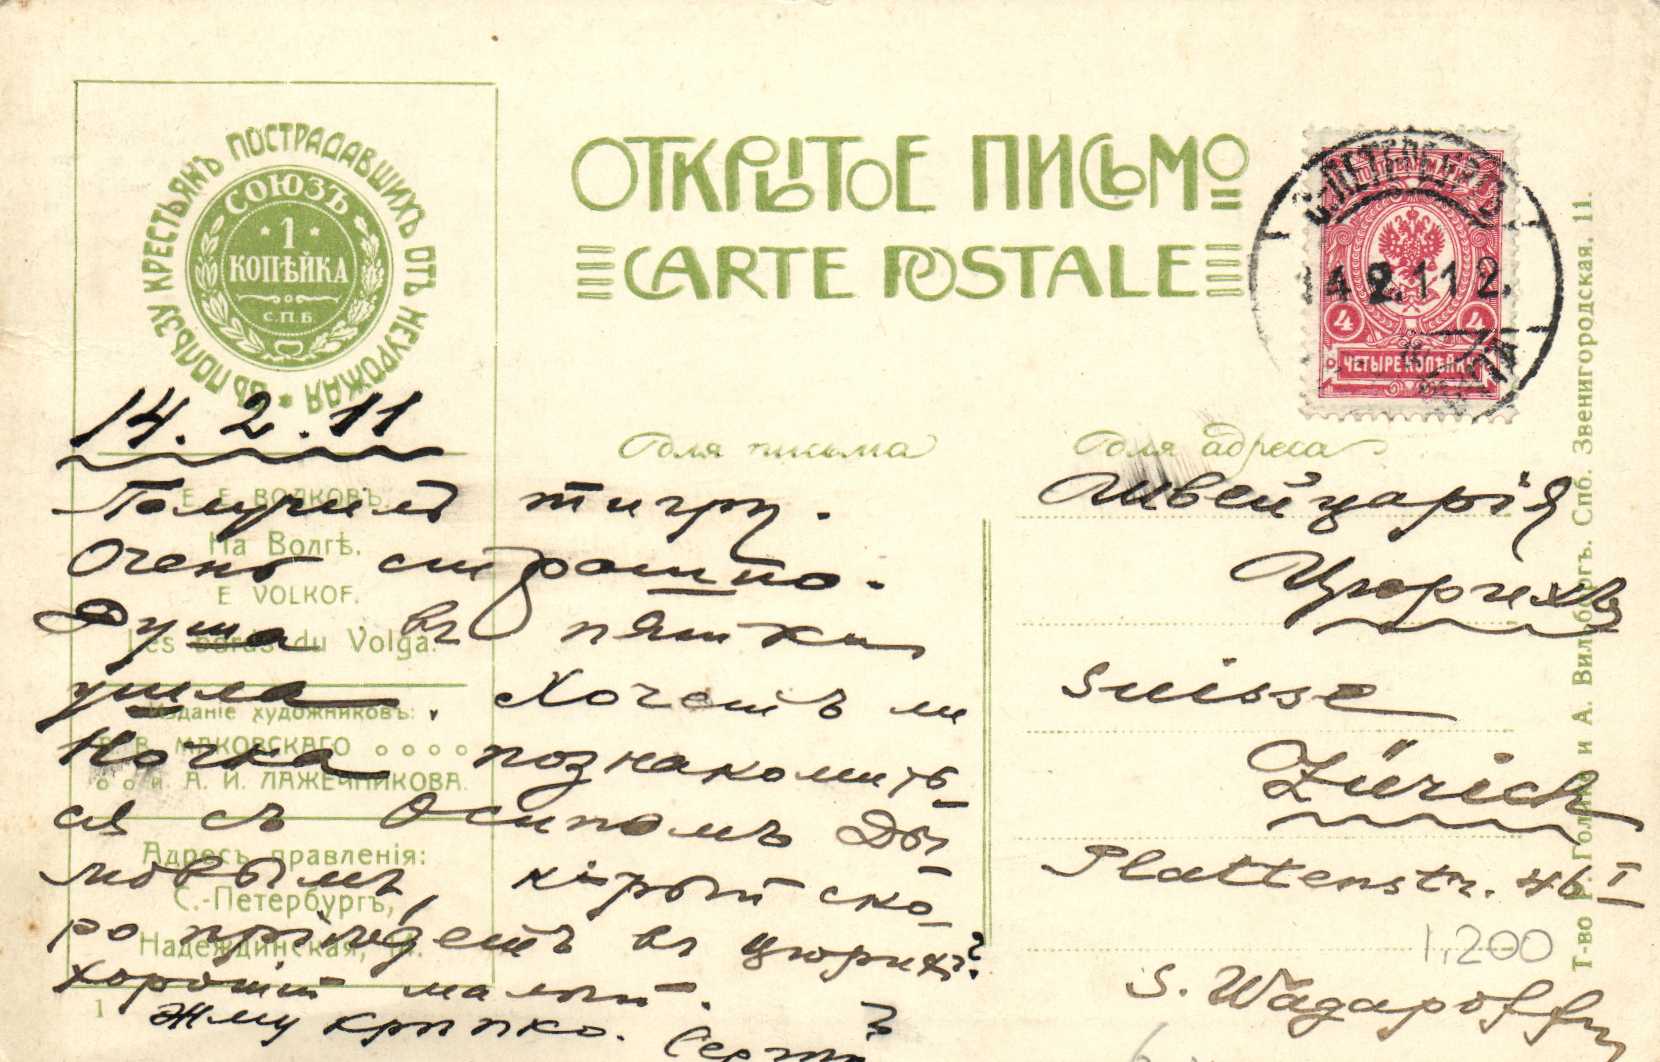 ВЪ ПОЛЬЗУ КРЕСТЬЯНЪ ПОСТРАДАВШИХЪ ОТЪ НЕУРОЖАЯ *
СОЮЗЪ
* 1 *
КОПѢЙКА
С.П.Б
ОТКРЫТОЕ ПИСЬМО
CARTE POSTALE
С.ПЕТЕРБУРГЪ
14 2.11 2.
4 4
ЧЕТЫРЕ КОПѢЙКИ
14.2.11
Для письма
Для адреса
Е. Е. ВОЛКОВЪ.
На Волгѣ.
E VOLKOF.
Les bords du Volga.
Изданіе художниковъ:
В. В. МАКОВСКАГО
и А. И. ЛАЖЕЧНИКОВА.
Адресъ правленія:
С.-Петербургъ,
Надеждинская,
1
Получилъ тигру.
Очень страшно.
Душа въ пятки
ушла. Хочетъ ли
Кочка познакомить-
ся съ Осипомъ Ды-
мовымъ, к-рый ско-
ро пріѣдетъ въ Цюрихъ?
хорошій малый.
Жму крѣпко. Сергѣй
Швейцарія
Цюрихъ
Suisse
Zürich
Plattenstr. 46 I
S. Wagapoff
1,200
Т-во Р. Голике и А. Вильборгъ. Спб. Звенигородская, 11.